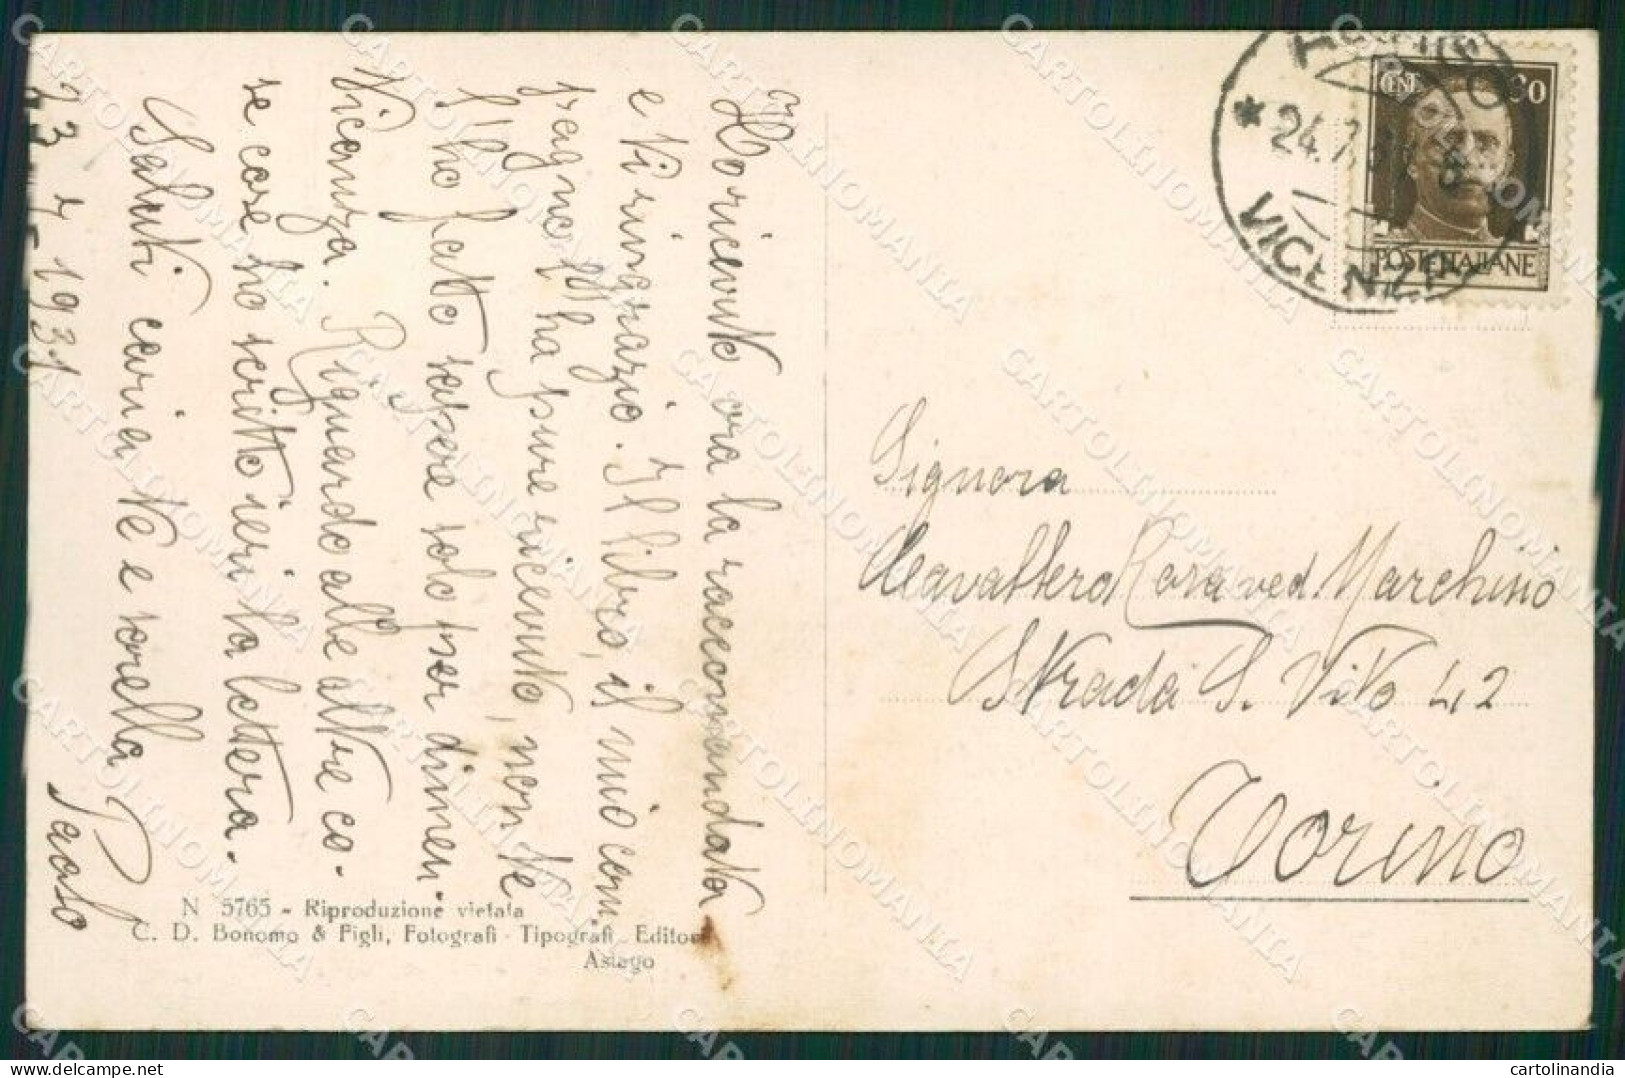 Ho ricevuto ora la raccomandata
e Vi ringrazio. Il libro, il mio com
pagno l'ha pure ricevuto, non Ve
l'ho fatto sapere solo per dimen
ticanza. Riguardo alle altre co-
se cose ho scritto ieri la lettera.
Saluti cari a Ve e sorella
Paolo
1931
N 5765 - Riproduzione vietata
C. D. Bonomo & Figli, Fotografi - Tipografi Editori
Asiago
* 24.7
VICENZA
CENT
POSTE ITALIANE
Signora
Rosa ved. Marchisio
Strada S. Vito 42
Torino
CARTOLINOMANIA
cartolinandia